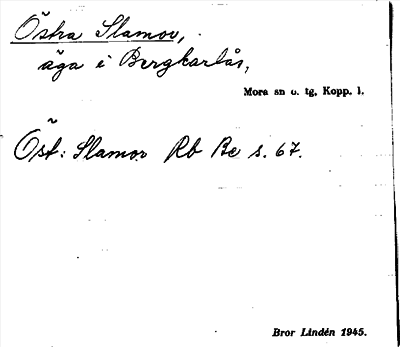 Östra Slamov,
äga i Bergkarlås,
Mora sn o. tg, Kopp. l.
Öst: Slamov Rb Be s. 67.
Bror Lindén 1945.